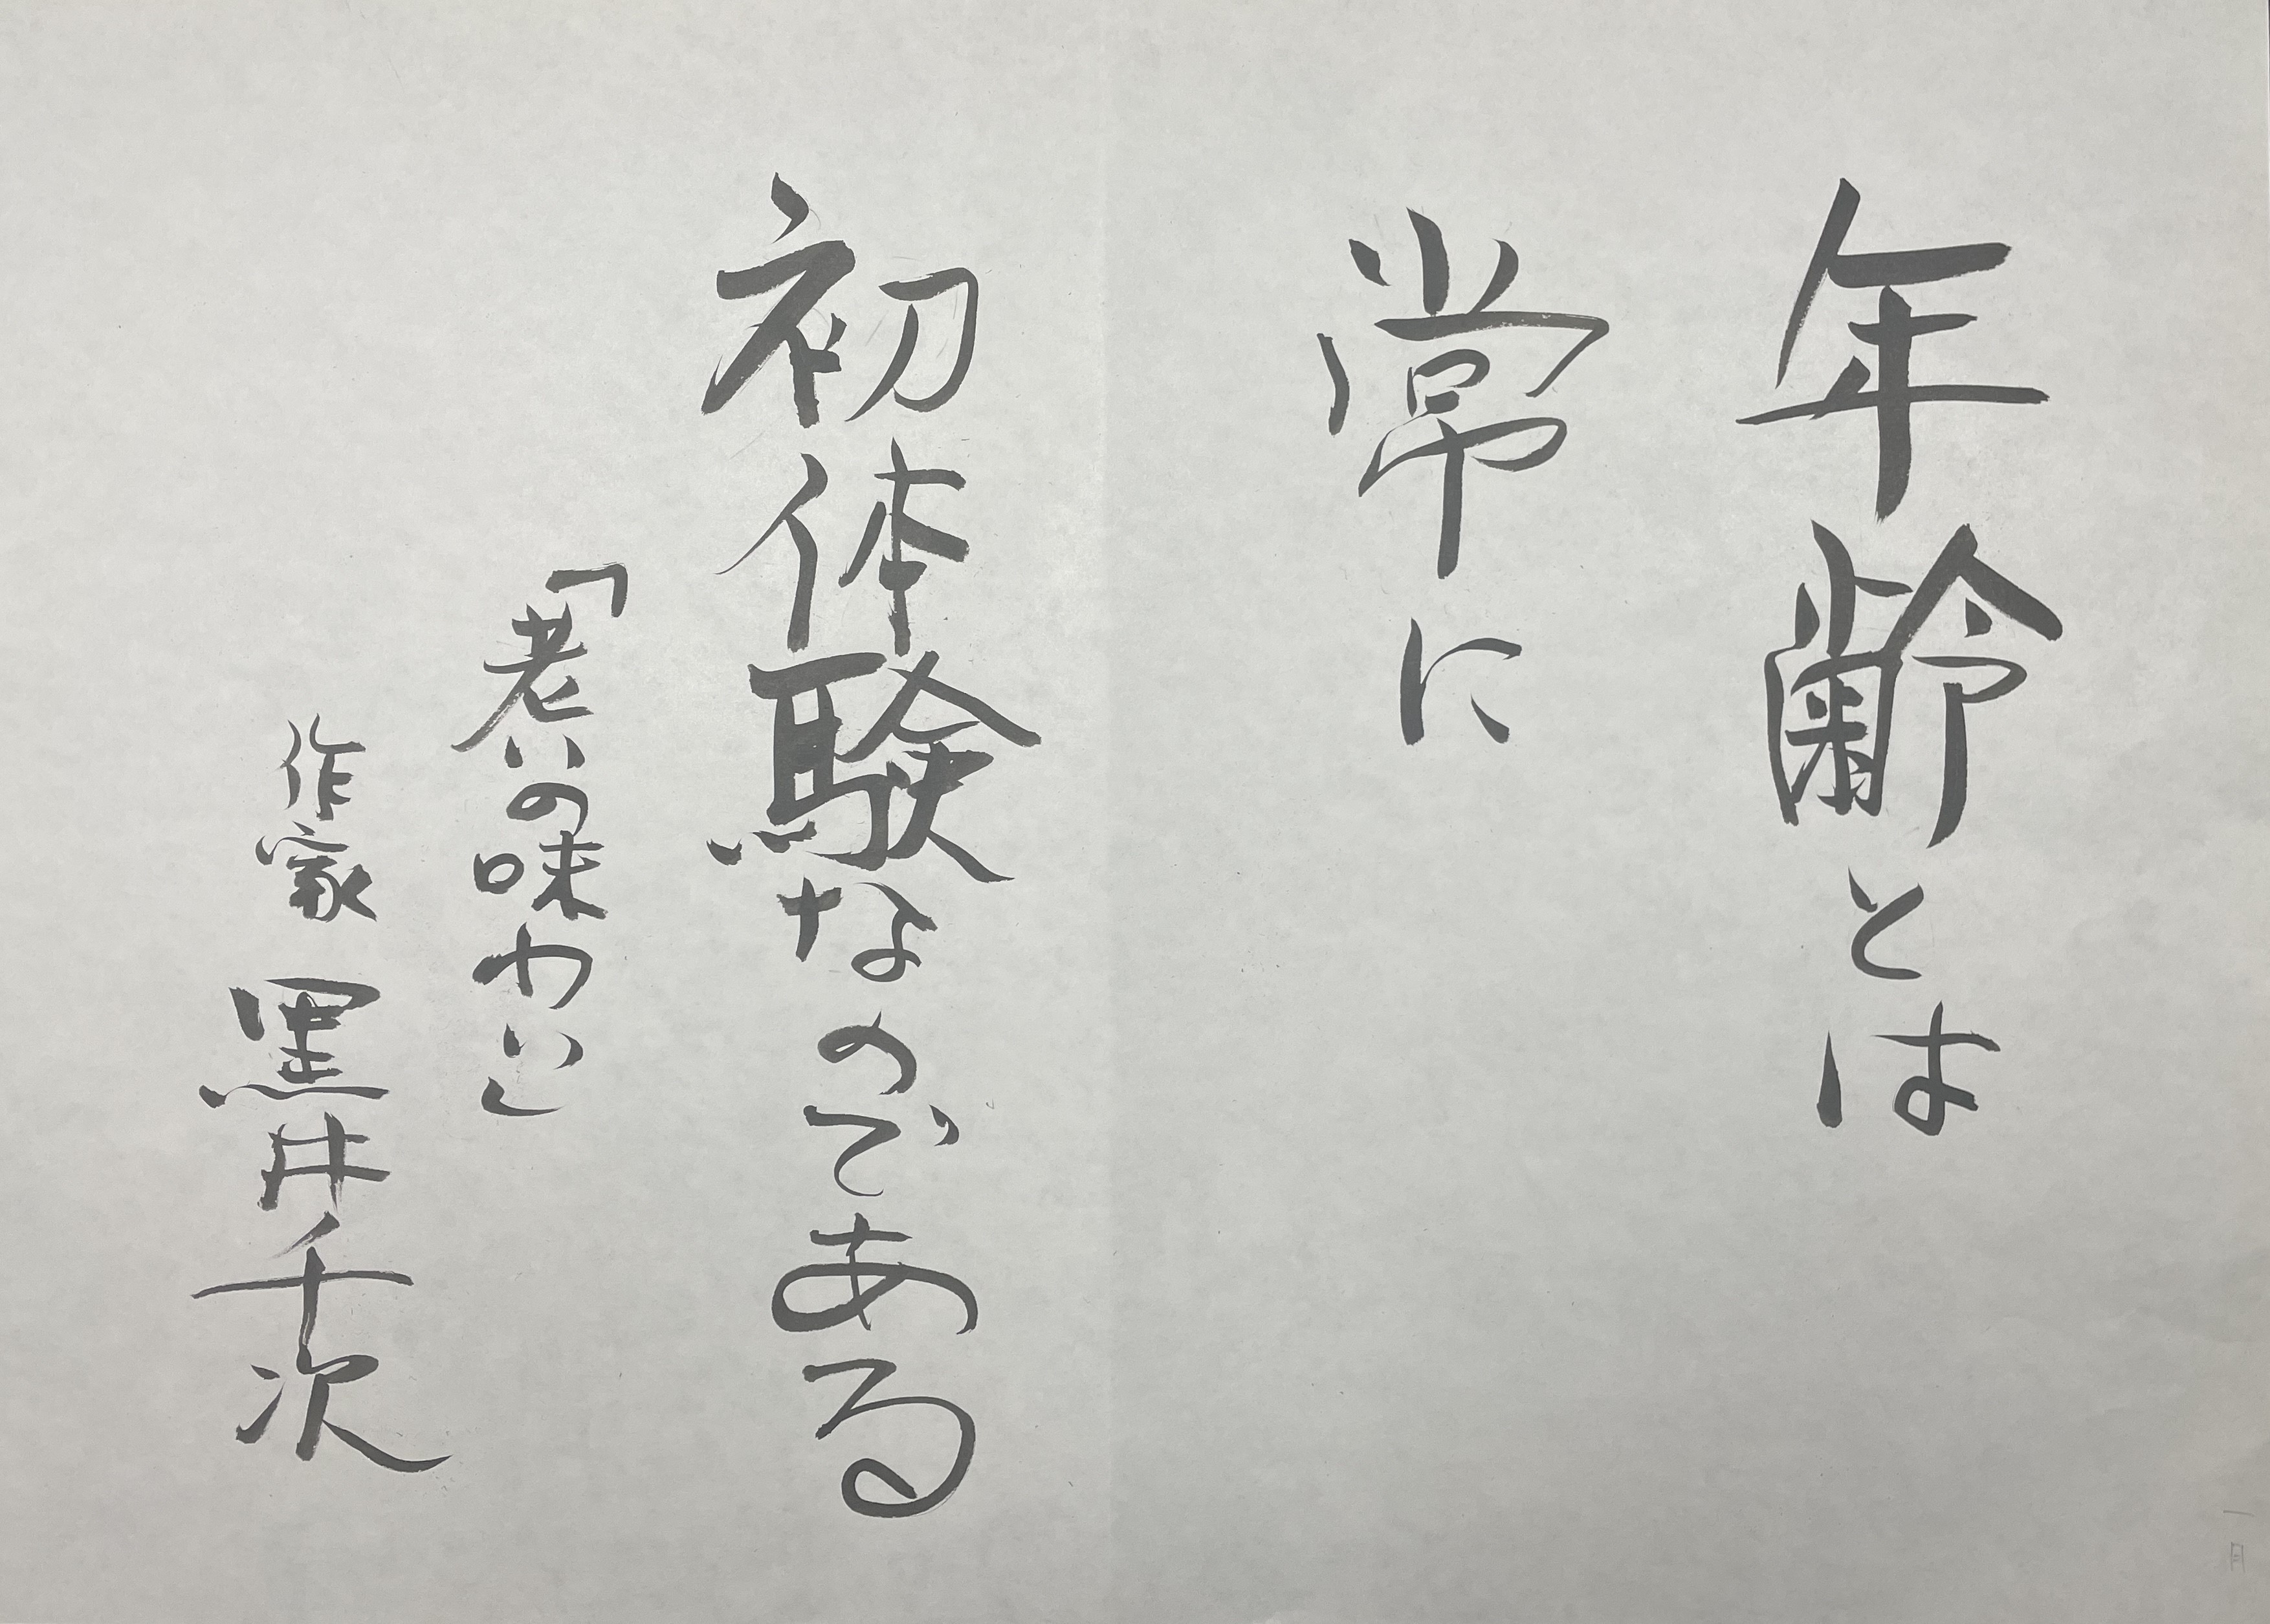 年齢とは
常に
初体験なのである
「老いの味わい」
作家 黒井千次
一月